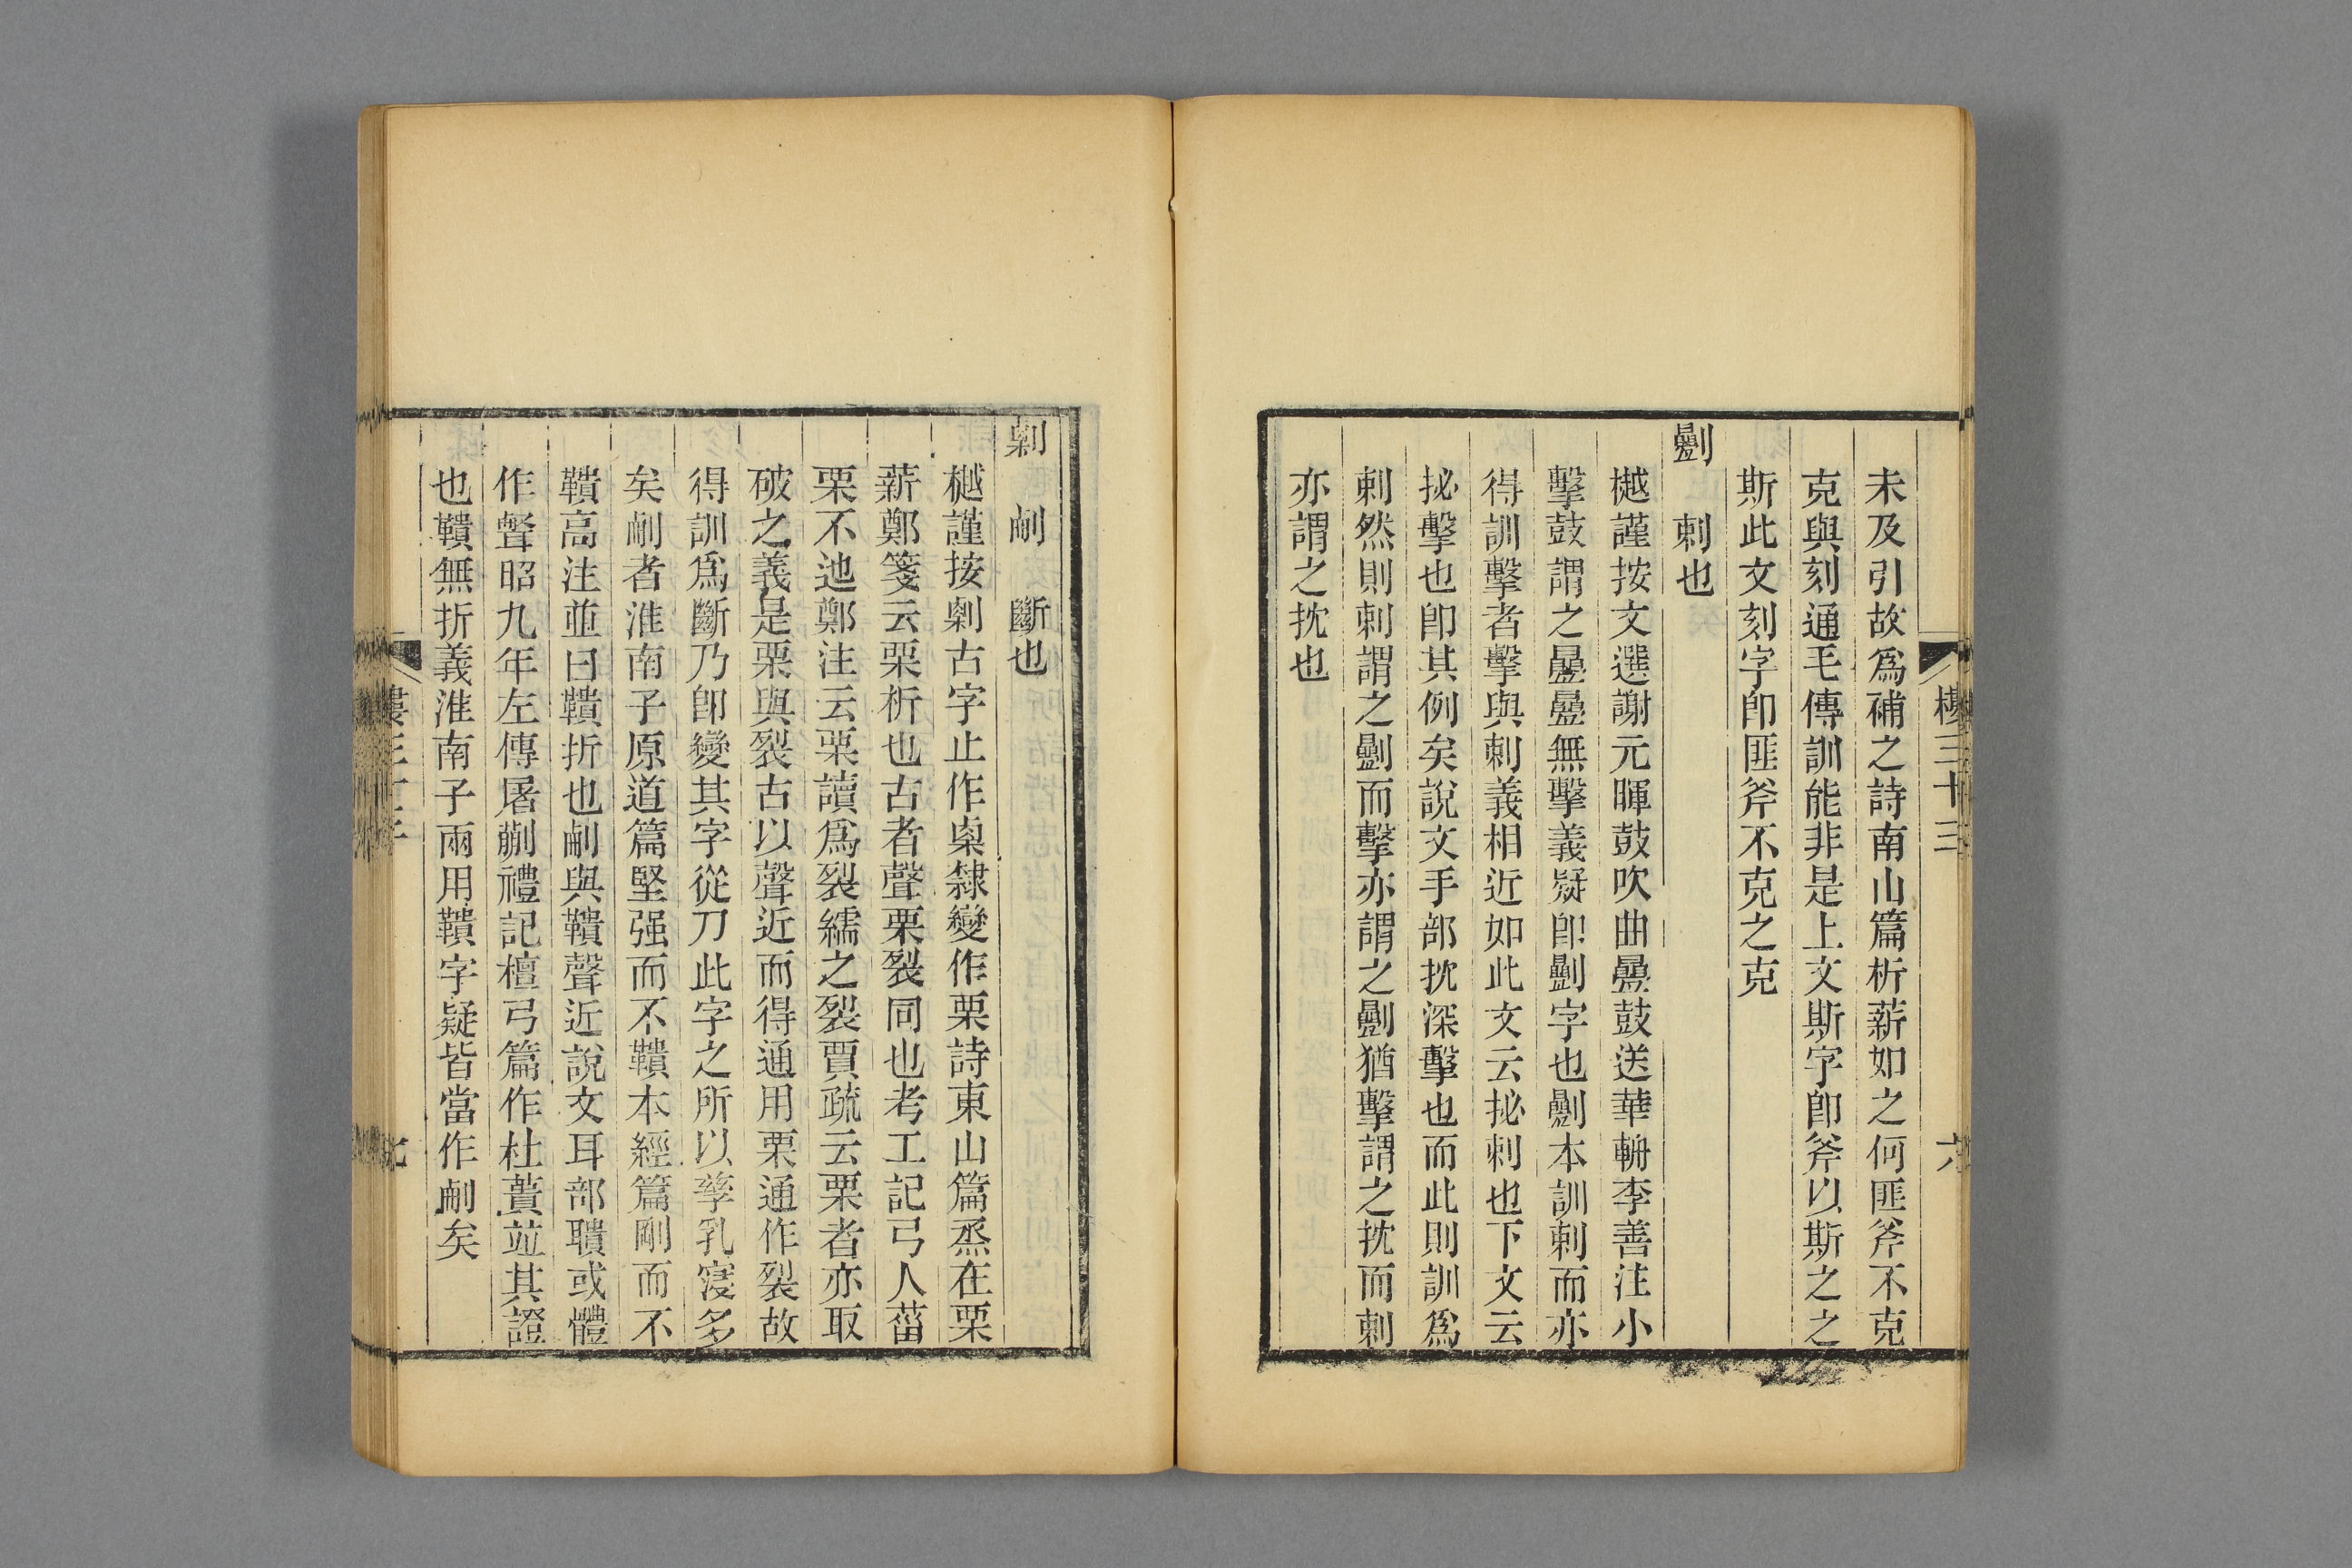 樓三十三
六
未及引故爲補之詩南山篇析薪如之何匪斧不克
克與刻通毛傳訓能非是上文斯字卽斧以斯之之
斯此文刻字卽匪斧不克之克
劙　刺也
樾謹按文選謝元暉鼓吹曲疊鼓送華輈李善注小
擊鼓謂之疊疊無擊義疑卽劙字也劙本訓刺而亦
得訓擊者擊與刺義相近如此文云㧙刺也下文云
㧙擊也卽其例矣說文手部抌深擊也而此則訓爲
刺然則刺謂之劙而擊亦謂之劙猶擊謂之抌而刺
亦謂之抌也
𠞉　𠜾　斷也
樾謹按𠞉古字止作㮚隸變作栗詩東山篇烝在栗
薪鄭箋云栗析也古者聲栗裂同也考工記弓人菑
栗不迆鄭注云栗讀爲裂繻之裂賈疏云栗者亦取
破之義是栗與裂古以聲近而得通用栗通作裂故
得訓爲斷乃卽變其字從刀此字之所以孳乳寖多
矣𠜾者淮南子原道篇堅强而不鞼本經篇剛而不
鞼高注並曰鞼折也𠜾與鞼聲近說文耳部聵或體
作聲昭九年左傳屠蒯禮記檀弓篇作杜蕢竝其證
也鞼無折義淮南子兩用鞼字疑皆當作𠜾矣
七